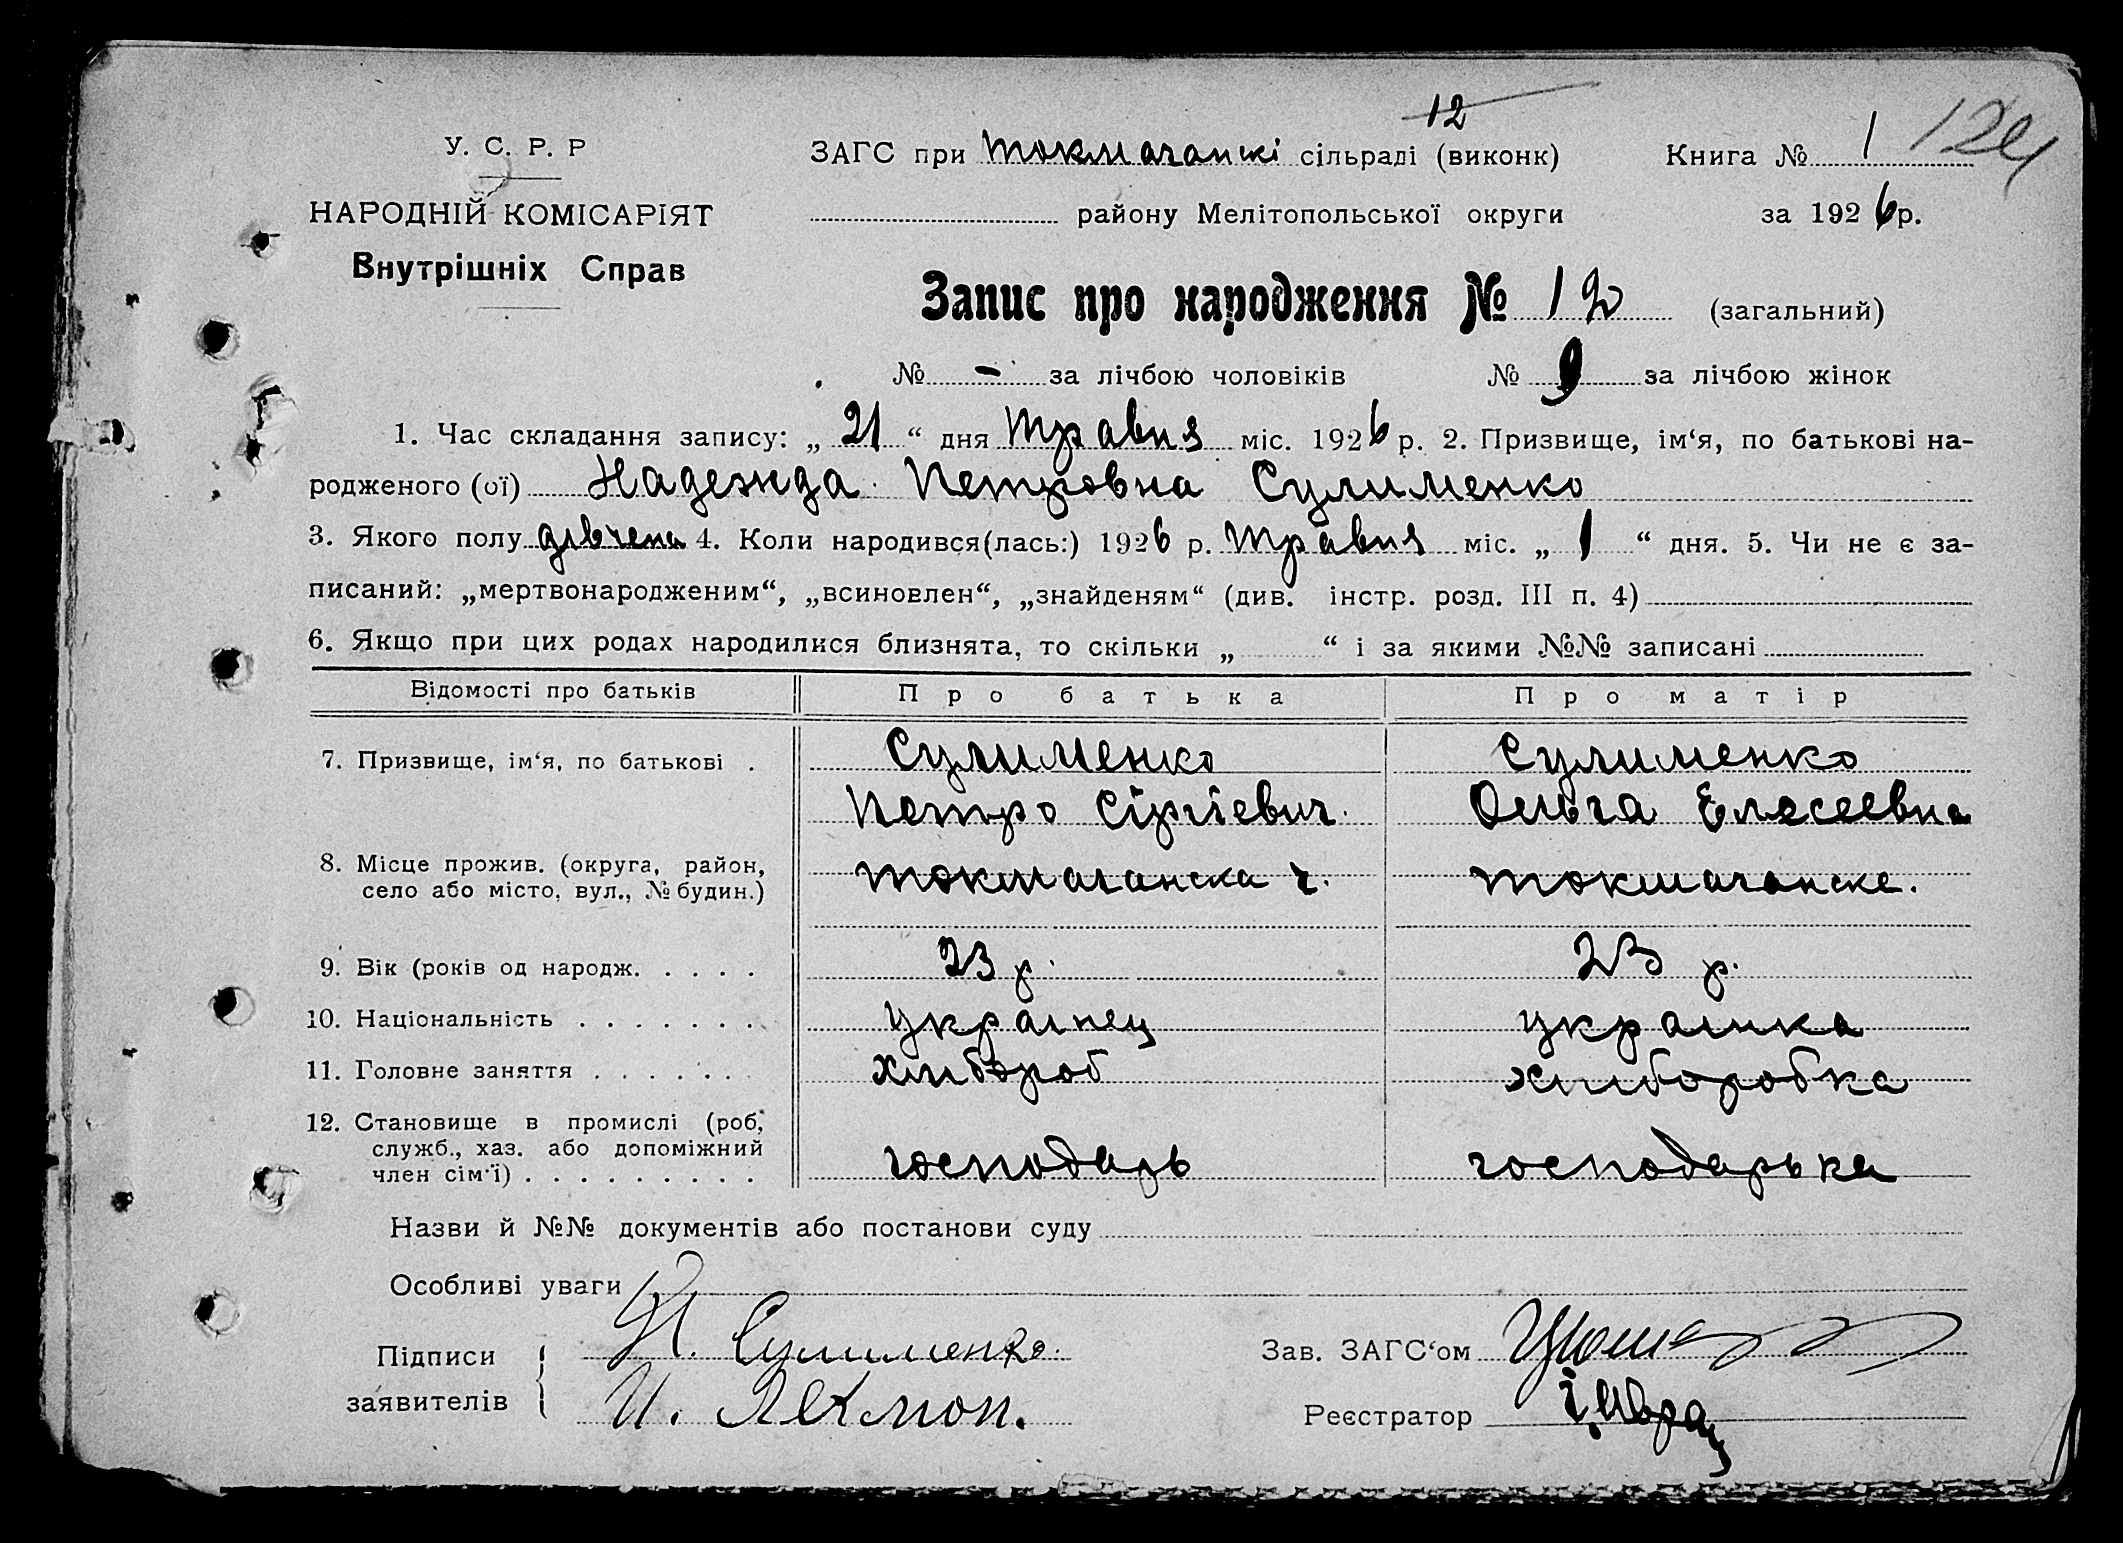 12
У. С. Р. Р ЗАГС при Токмачанскі сільраді (виконк) Книга № 1 124
НАРОДНІЙ КОМІСАРІЯТ району Мелітопольської округи за 1926 р.
Внутрішніх Справ
Запис про народження № 12 (загальний)
№ - за лічбою чоловіків № 9 за лічбою жінок
1. Час складання запису: „ 21 “ дня Травня міс. 1926 р. 2. Призвище, ім‘я, по батькові на-
родженого (ої) Надежда Петровна Сулименко
3. Якого полу дівчена 4. Коли народився(лась:) 1926 р. Травня міс. „ 1 “ дня. 5. Чи не є за-
писаний: „мертвонародженим“, „всиновлен“, „знайденям“ (див. інстр. розд. III п. 4)
6. Якщо при цих родах народилися близнята, то скільки „ “ і за якими №№ записані
Відомості про батьків Про батька Про матір
7. Призвище, ім‘я, по батькові . Сулименко Сулименко
Петро Сіргіевич. Ольга Елесеевна
8. Місце прожив. (округа, район, Токмачанска
село або місто, вул., № будин.) Токмачанске.
9. Вік (років од народж. . . . . 23 р. 23 р.
10. Національність . . . . . . . українец украинка
11. Головне заняття . . . . . . . хлибороб хлиборобка
12. Становище в промислі (роб,
служб., хаз. або допоміжний
член сім‘ї) . . . . . . . . . господарь господарька
Назви й №№ документів або постанови суду
Особливі уваги
Підписи П. Сулименко. Зав. ЗАГС‘ом
заявителів И. Реєстратор